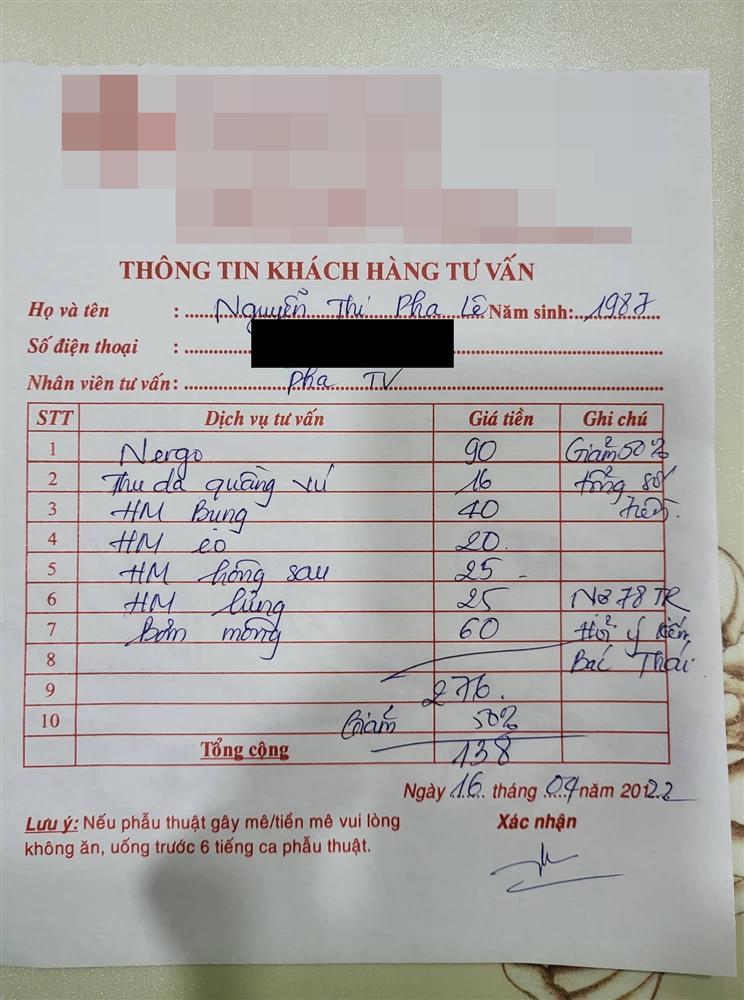 THÔNG TIN KHÁCH HÀNG TƯ VẤN
Họ và tên : Nguyễn Thị Pha Lê Năm sinh: 1987
Số điện thoại :
Nhân viên tư vấn: Pha TV
STT Dịch vụ tư vấn Giá tiền Ghi chú
1 Nergo 90 Giảm 50%
2 Thu da quầng vú 16 tổng số
3 HM Bụng 40 tiền.
4 HM eo 20.
5 HM hông sau 25
6 HM lưng 25 Nợ 78 TR
7 Bơm mông 60 Hỏi ý kiến
8 Bác Thái
9 276.
10 Giảm 50%
Tổng cộng 138
Ngày 16 tháng 04 năm 2022
Lưu ý: Nếu phẫu thuật gây mê/tiền mê vui lòng Xác nhận
không ăn, uống trước 6 tiếng ca phẫu thuật.